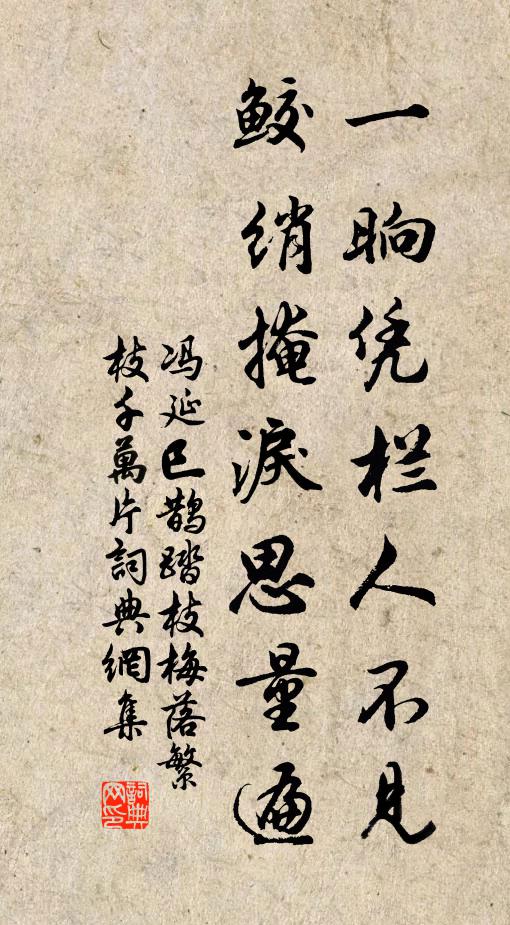 一晌凭栏人不见
鲛绡掩淚思量遍
冯延巳鹊踏枝梅落繁
枝千萬片詞典網集
詞典网印